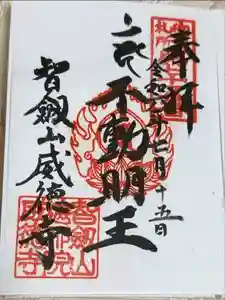 奉拝
令和六年七月十五日
不動明王
智劔山威徳寺